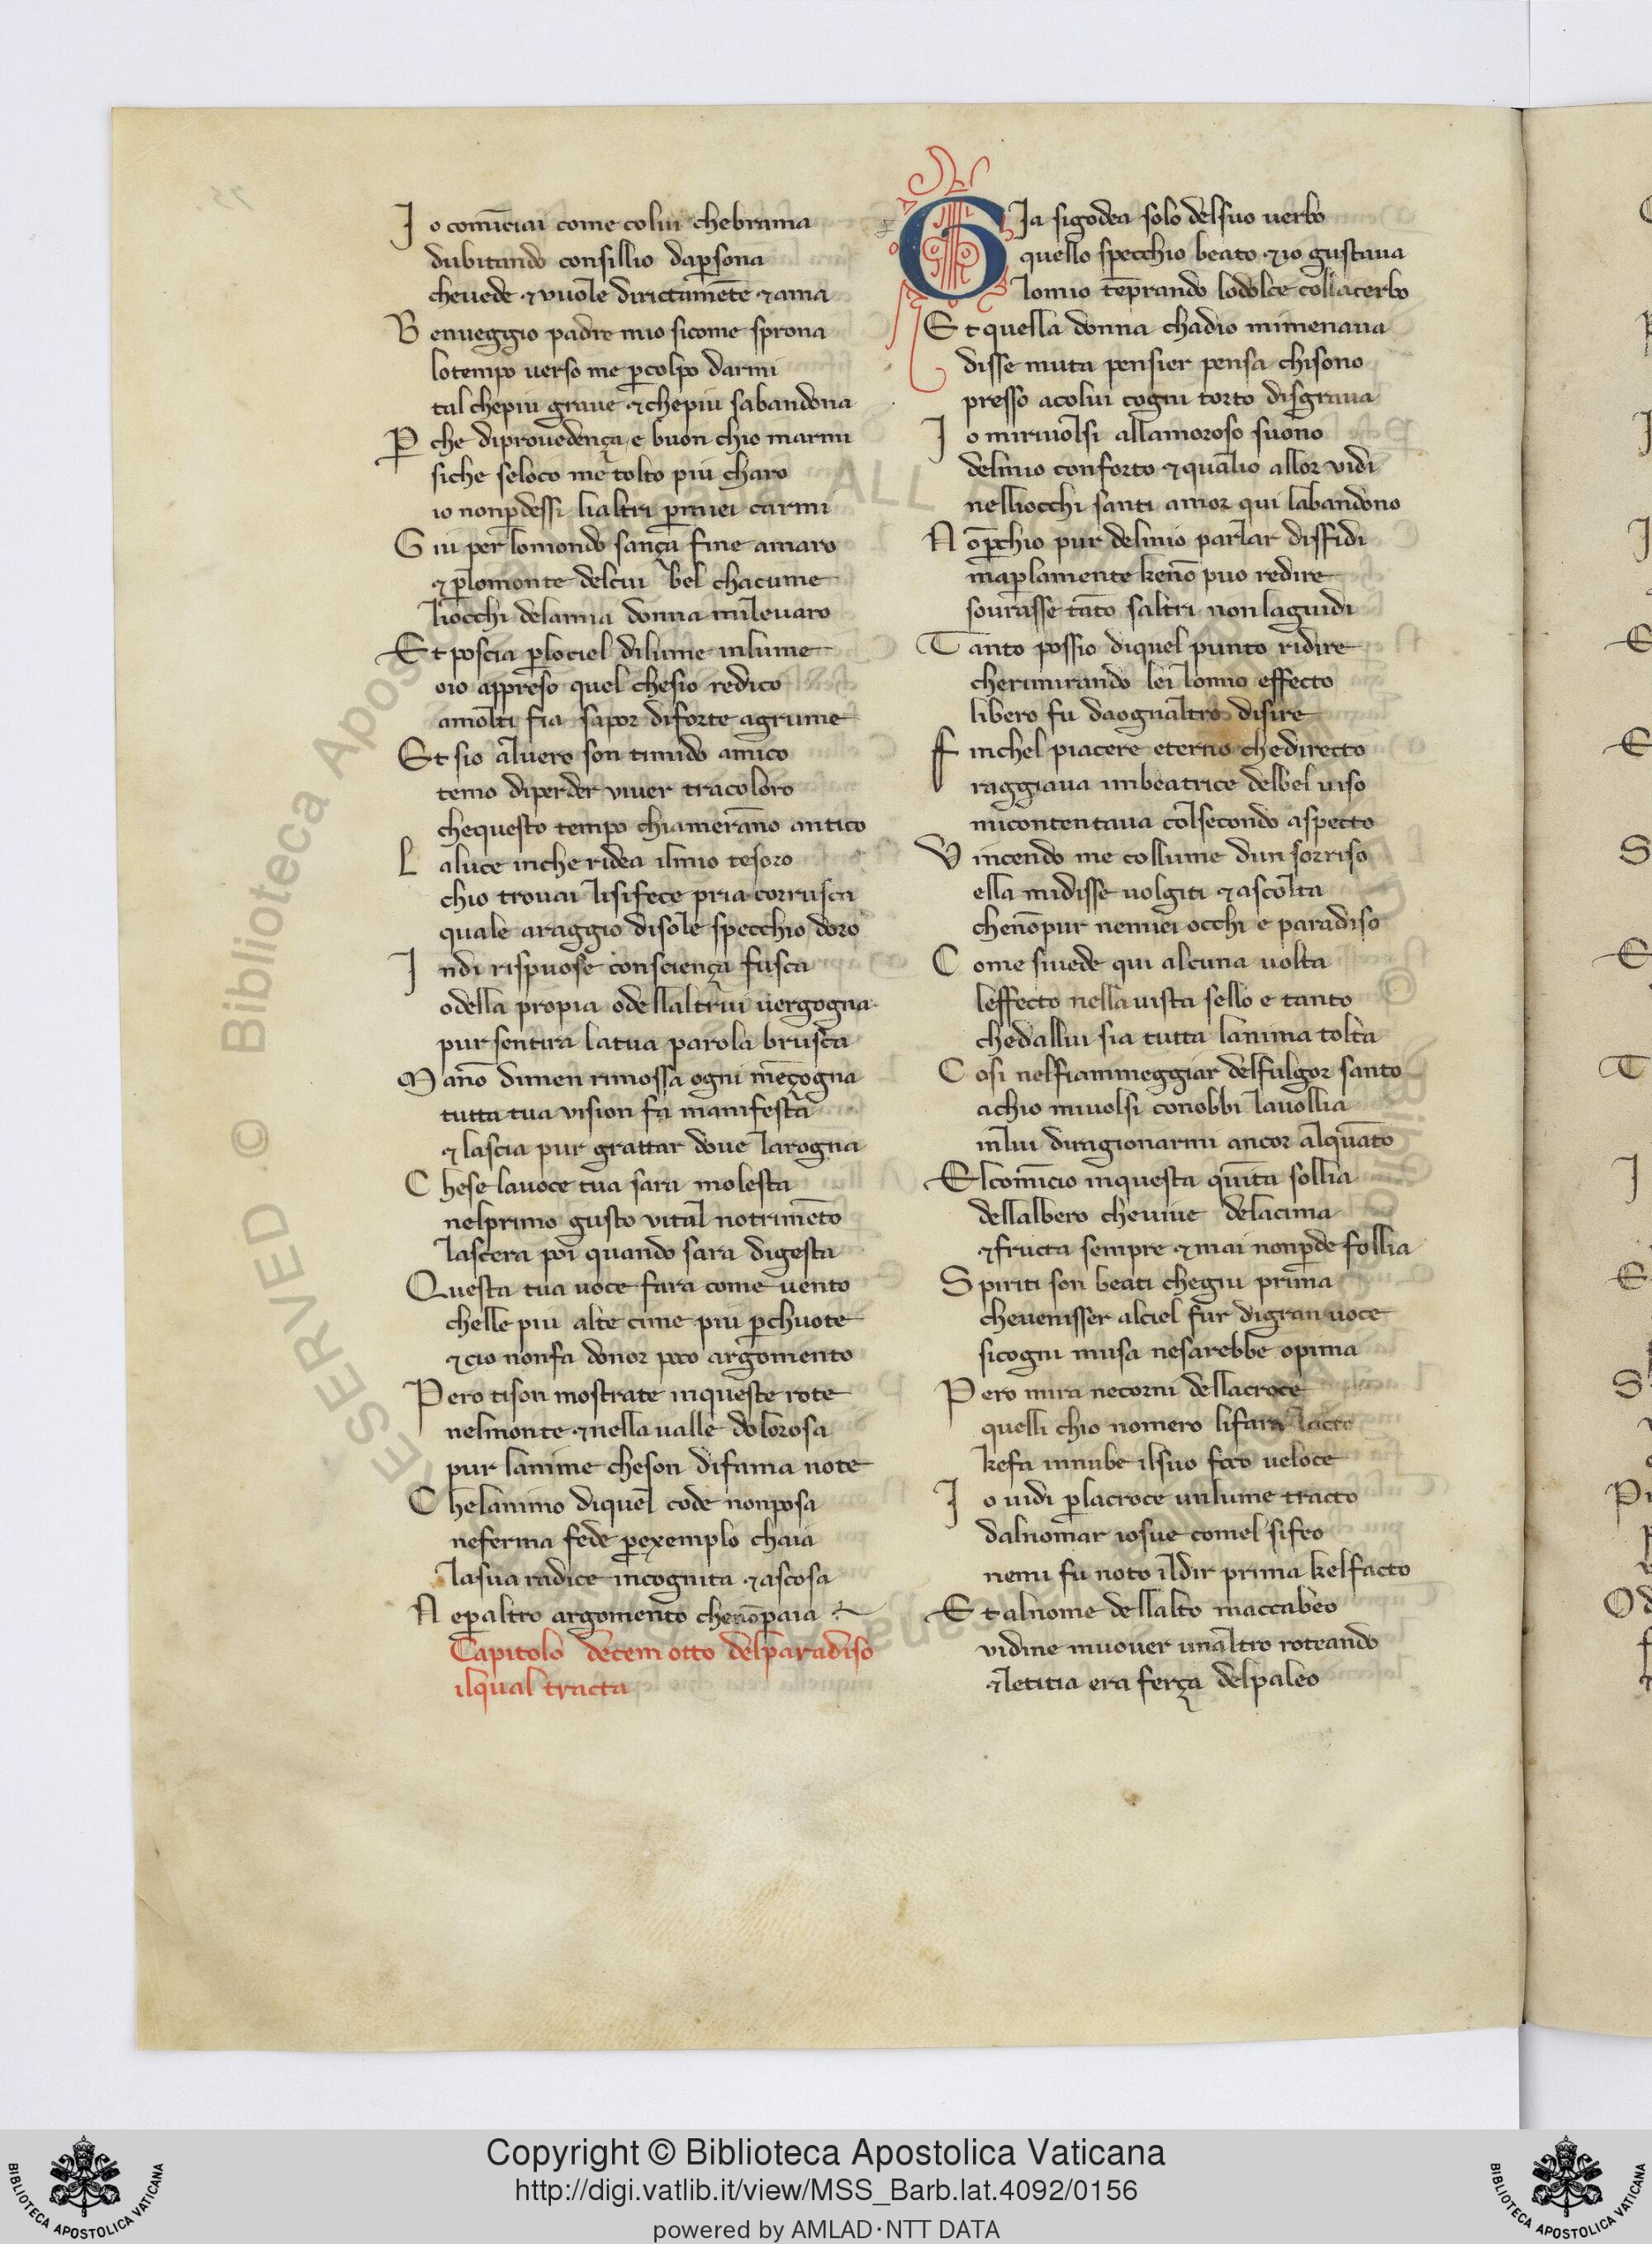 Io comīciai come colui chebrama
dubitando consillio dap̄sona
cheuede ⁊ vuole dirictamēte ⁊ ama
Benueggio padre mio sicome sprona
lotempo uerso me p̄colpo darmi
tal chepiu graue ⁊ chepiu sabandona
P̄che diprouedença e buon chio marmi
siche seloco me tolto piu charo
io nonp̄dessi lialtri p̄miei carmi
Giu per lomondo sança fine amaro
⁊ p̄lomonte delcui bel chacume
liocchi delamia donna mileuaro
Et poscia p̄lociel dilume inlume
oio appreso quel chesio redico
amolti fia sapor diforte agrume
Et sio aluero son timido amico
temo diperder viuer tracoloro
chequesto tempo chiamerāno antico
La luce inche ridea ilmio tesoro
chio trouai lisifece pria corrusca
quale araggio disole specchio doro
Indi rispuose consciença fusca
odella propia odellaltrui uergogna
pur sentira latua parola brusca
Manō dimen rimossa ogni mēçogna
tutta tua vision fa manifesta
⁊ lascia pur grattar doue larogna
Chese lauoce tua sara molesta
nelprimo gusto vital notrimēto
lascera poi quando sara digesta
Questa tua uoce fara come uento
chelle piu alte cime piu p̄chuote
⁊ cio nonfa donor poco argomento
Pero tison mostrate inqueste rote
nelmonte ⁊ nella ualle dolorosa
pur lanime cheson difama note
Chelanimo diquel code nonposa
neferma fede p̄exemplo chaia
lasua radice incognita ⁊ ascosa
Neperaltro argomento chenōpaia
Capitolo decem otto delparadiso
ilqual tracta
GIa sigodea solo delsuo uerbo
quello specchio beato ⁊ io gustaua
lomio tēprando lodolce collacerbo
Et quella donna chadio mimenaua
disse muta pensier pensa chisono
presso acolui cogni torto disgraua
Io miriuolsi allamoroso suono
delmio conforto ⁊ qualio allor vidi
nelliocchi santi amor qui labandono
Nop̄chio pur delmio parlar diffidi
map̄lamente kenō puo redire
sourasse tāto saltri non laguidi
Tanto possio diquel punto ridire
cherimirando lei lomio effecto
libero fu daognaltro disire
Finchel piacere eterno chedirecto
raggiaua inbeatrice delbel uiso
micontentaua colsecondo aspecto
Vincendo me collume dun sorriso
ella midisse uolgiti ⁊ ascolta
chenōpur nemiei occhi e paradiso
Come siuede qui alcuna uolta
leffecto nella uista sello e tanto
chedallui sia tutta lanima tolta
Cosi nelfiammeggiar delfulgor santo
achio miuolsi conobbi lauollia
inlui diragionarmi ancor alquāto
Elcomīcio inquesta quīta sollia
dellalbero cheuiue delacima
⁊ fructa sempre ⁊ mai nonp̄de follia
Spiriti son beati chegiu prima
cheuenisser alciel fur digran uoce
sicogni musa nesarebbe opima
Pero mira necorni dellacroce
quelli chio nomero lifara lacto
kefa innube ilsuo foco ueloce
Io uidi p̄lacroce unlume tracto
dalnomar iosue comel sifeo
nemi fu noto ildir prima kelfacto
Et alnome dellalto maccabeo
vidine muouer unaltro roteando
⁊ letitia era ferça delpaleo
Copyright © Biblioteca Apostolica Vaticana
http://digi.vatlib.it/view/MSS_Barb.lat.4092/0156
powered by AMLAD·NTT DATA